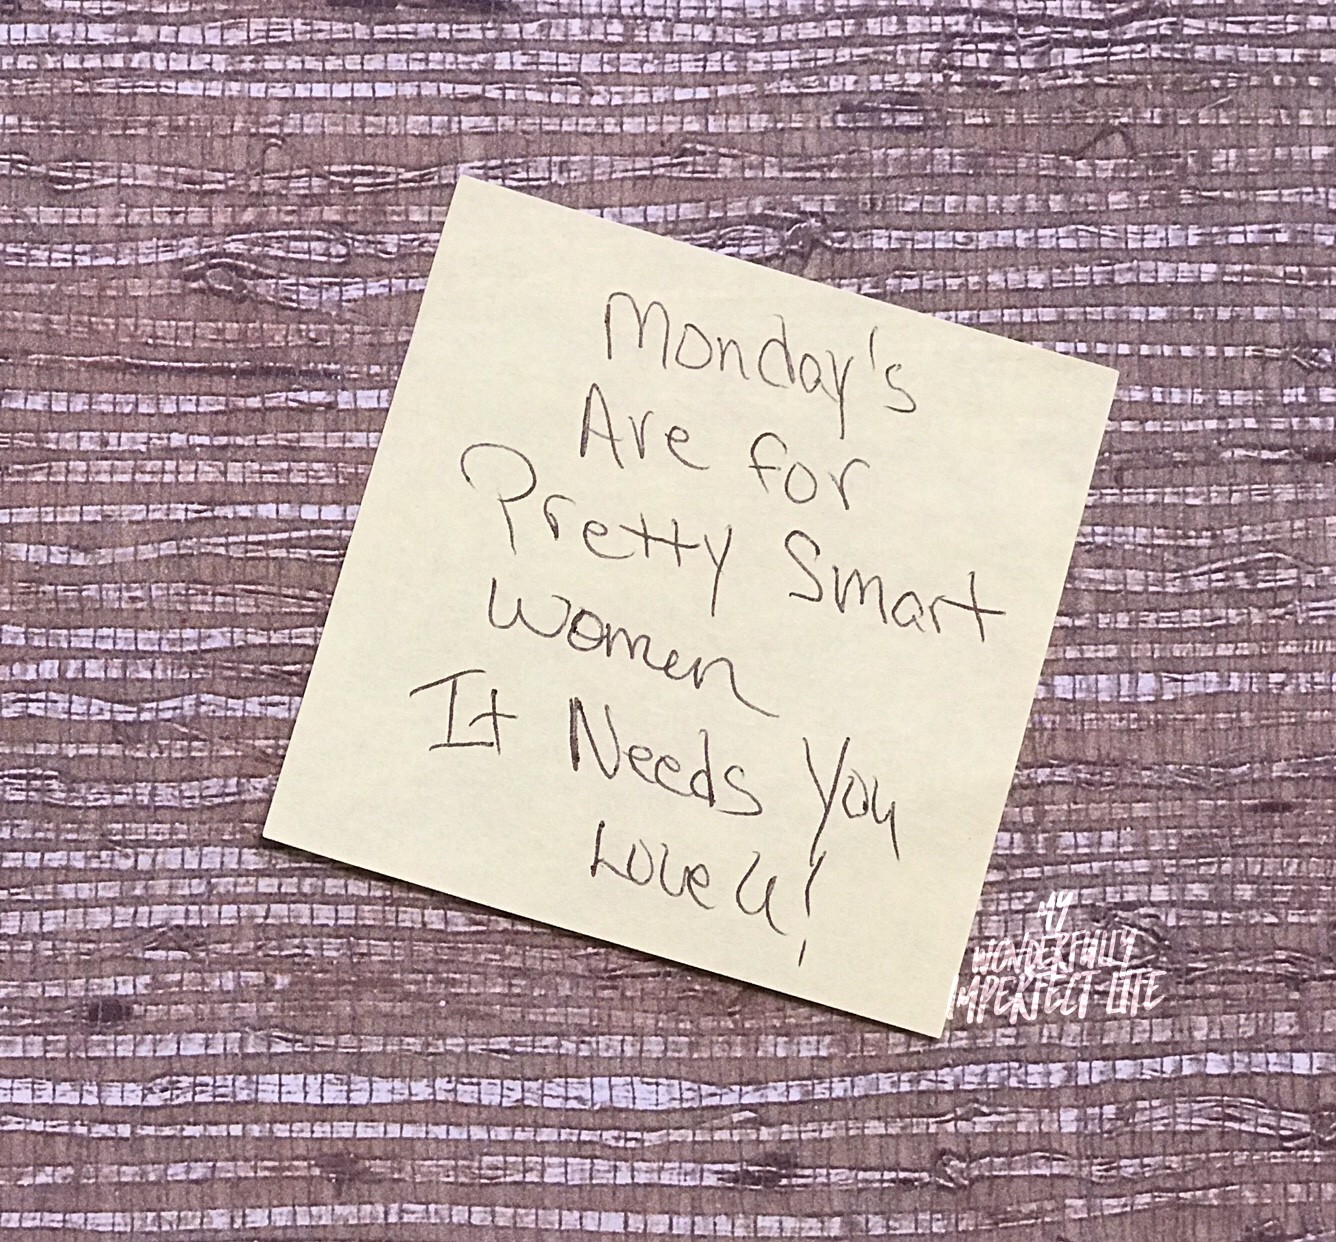 Monday's
Are for
Pretty Smart
Women
It Needs You
Love u!
MY
WONDERFULLY
IMPERFECT LIFE